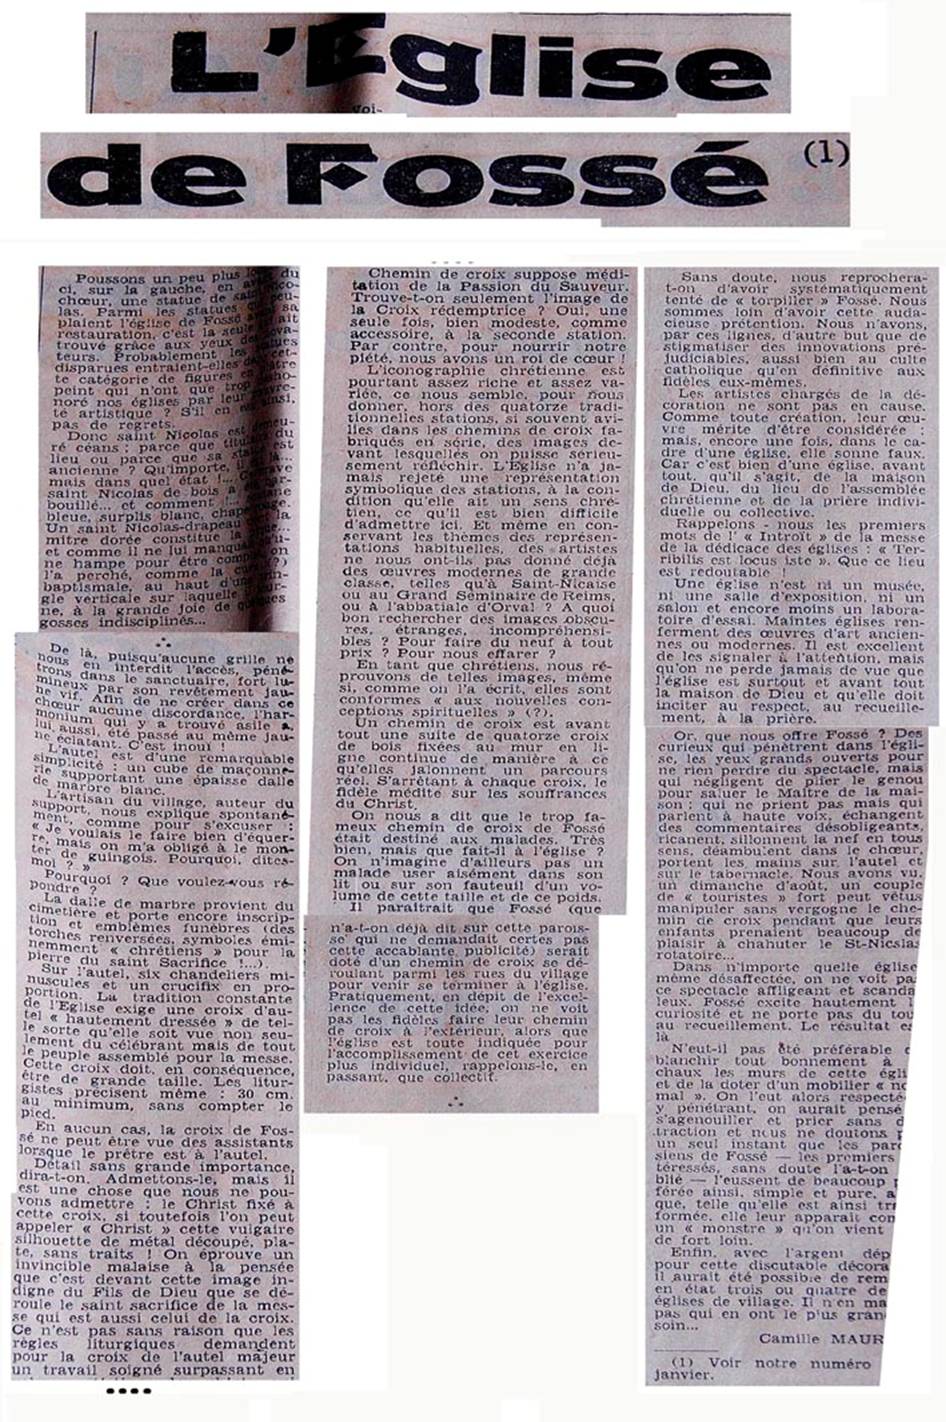 L'Eglise
voi-
de Fossé (1)
Poussons un peu plus du
ci, sur la gauche, en
chœur, une statue de
las. Parmi les statues sa
plaient l'église de Fossé
restauration, c'est la seule
trouvé grâce aux yeux des
teurs. Probablement les
disparues entraient-elles
te catégorie de figures
peint qui n'ont que trop
noré nos églises par leur
té artistique ? S'il en est ainsi,
pas de regrets.
Donc saint Nicolas est demeu-
ré céans : parce que titulaire du
lieu ou parce que sa est
ancienne ? Qu'importe, il
mais dans quel état !...
saint Nicolas de bois a
bouillé... et comment !...
bleue, surplis blanc, chape
Un saint Nicolas-drapeau
mitre dorée constitue la
et comme il ne lui manquait on
ne hampe pour être complet (?)
l'a perché, comme la
baptismale, au haut d'une
gle verticale sur laquelle
ne, à la grande joie de quelques
gosses indisciplinés...
De là, puisqu'aucune grille ne
nous en interdit l'accès, péné-
trons dans le sanctuaire fort lu-
mineux par son revêtement jau-
ne vif. Afin de ne créer dans ce
chœur aucune discordance, l'har-
monium qui y a trouvé asile a,
lui aussi, été passé au même jau-
ne éclatant. C'est inouï !
L'autel est d'une remarquable
simplicité : un cube de maçonne-
rie supportant une épaisse dalle
de marbre blanc.
L'artisan du village, auteur du
support, nous explique spontané-
ment, comme pour s'excuser :
« Je voulais le faire bien d'équer-
re, mais on m'a obligé à le mon-
ter de guingois. Pourquoi, dites-
moi ? »
Pourquoi ? Que voulez-vous ré-
pondre ?
La dalle de marbre provient du
cimetière et porte encore inscrip-
tion et emblèmes funèbres (des
torches renversées, symboles émi-
nemment « chrétiens » pour la
pierre du saint Sacrifice !...).
Sur l'autel, six chandeliers mi-
nuscules et un crucifix en pro-
portion. La tradition constante
de l'Eglise exige une croix d'au-
tel « hautement dressée » de tel-
le sorte qu'elle soit vue non seu-
lement du célébrant mais de tout
le peuple assemblé pour la messe.
Cette croix doit, en conséquence,
être de grande taille. Les litur-
gistes précisent même : 30 cm.
au minimum, sans compter le
pied.
En aucun cas, la croix de Fos-
sé ne peut être vue des assistants
lorsque le prêtre est à l'autel.
Détail sans grande importance,
dira-t-on. Admettons-le, mais il
est une chose que nous ne pou-
vons admettre : le Christ fixé à
cette croix, si toutefois l'on peut
appeler « Christ » cette vulgaire
silhouette de métal découpé, pla-
te, sans traits ! On éprouve un
invincible malaise à la pensée
que c'est devant cette image in-
digne du Fils de Dieu que se dé-
roule le saint sacrifice de la mes-
se qui est aussi celui de la croix.
Ce n'est pas sans raison que les
règles liturgiques demandent
pour la croix de l'autel majeur
un travail soigné surpassant en
Chemin de croix suppose médi-
tation de la Passion du Sauveur.
Trouve-t-on seulement l'image de
la Croix rédemptrice ? Oui, une
seule fois, bien modeste, comme
accessoire, à la seconde station.
Par contre, pour nourrir notre
piété, nous avons un roi de cœur !
L'iconographie chrétienne est
pourtant assez riche et assez va-
riée, ce nous semble, pour nous
donner, hors des quatorze tradi-
tionnelles stations, si souvent avi-
lies dans les chemins de croix fa-
briqués en série, des images de-
vant lesquelles on puisse sérieu-
sement réfléchir. L'Eglise n'a ja-
mais rejeté une représentation
symbolique des stations, à la con-
dition qu'elle ait un sens chré-
tien, ce qu'il est bien difficile
d'admettre ici. Et même en con-
servant les thèmes des représen-
tations habituelles, des artistes
ne nous ont-ils pas donné déjà
des œuvres modernes de grande
classe, telles qu'à Saint-Nicaise
ou au Grand Séminaire de Reims,
ou à l'abbatiale d'Orval ? A quoi
bon rechercher des images obscu-
res, étranges, incompréhensi-
bles ? Pour faire du neuf à tout
prix ? Pour nous effarer ?
En tant que chrétiens, nous ré-
prouvons de telles images, même
si, comme on l'a écrit, elles sont
conformes « aux nouvelles con-
ceptions spirituelles » (?).
Un chemin de croix est avant
tout une suite de quatorze croix
de bois fixées au mur en li-
gne continue de manière à ce
qu'elles jalonnent un parcours
réel. S'arrêtant à chaque croix, le
fidèle médite sur les souffrances
du Christ.
On nous a dit que le trop fa-
meux chemin de croix de Fossé
était destiné aux malades. Très
bien, mais que fait-il à l'église ?
On n'imagine d'ailleurs pas un
malade user aisément dans son
lit ou sur son fauteuil d'un vo-
lume de cette taille et de ce poids.
Il paraîtrait que Fossé (que
n'a-t-on déjà dit sur cette parois-
se qui ne demandait certes pas
cette accablante publicité) serait
doté d'un chemin de croix se dé-
roulant parmi les rues du village
pour venir se terminer à l'église.
Pratiquement, en dépit de l'excel-
lence de cette idée, on ne voit
pas les fidèles faire leur chemin
de croix à l'extérieur, alors que
l'église est toute indiquée pour
l'accomplissement de cet exercice
plus individuel, rappelons-le, en
passant, que collectif.
Sans doute, nous reprochera-
t-on d'avoir systématiquement
tenté de « torpiller » Fossé. Nous
sommes loin d'avoir cette auda-
cieuse prétention. Nous n'avons,
par ces lignes, d'autre but que de
stigmatiser des innovations pré-
judiciables, aussi bien au culte
catholique qu'en définitive aux
fidèles eux-mêmes.
Les artistes chargés de la dé-
coration ne sont pas en cause.
Comme toute création, leur œu-
vre mérite d'être considérée :
mais, encore une fois, dans le ca-
dre d'une église, elle sonne faux.
Car c'est bien d'une église, avant
tout, qu'il s'agit, de la maison
de Dieu, du lieu de l'assemblée
chrétienne et de la prière indivi-
duelle ou collective.
Rappelons - nous les premiers
mots de l' « Introït » de la messe
de la dédicace des églises : « Ter-
ribilis est locus iste ». Que ce lieu
est redoutable !
Une église n'est ni un musée,
ni une salle d'exposition, ni un
salon et encore moins un labora-
toire d'essai. Maintes églises ren-
ferment des œuvres d'art ancien-
nes ou modernes. Il est excellent
de les signaler à l'attention, mais
qu'on ne perde jamais de vue que
l'église est surtout et avant tout
la maison de Dieu et qu'elle doit
inciter au respect, au recueille-
ment, à la prière.
Or, que nous offre Fossé ? Des
curieux qui pénètrent dans l'égli-
se, les yeux grands ouverts pour
ne rien perdre du spectacle, mais
qui négligent de plier le genou
pour saluer le Maître de la mai-
son ; qui ne prient pas mais qui
parlent à haute voix, échangent
des commentaires désobligeants,
ricanent, sillonnent la nef en tous
sens, déambulent dans le chœur,
portent les mains sur l'autel et
sur le tabernacle. Nous avons vu,
un dimanche d'août, un couple
de « touristes » fort peu vêtus
manipuler sans vergogne le che-
min de croix pendant que leurs
enfants prenaient beaucoup de
plaisir à chahuter le St-Nicolas
rotatoire...
Dans n'importe quelle église
même désaffectée, on ne voit pas
ce spectacle affligeant et scanda
leux. Fossé excite hautement l
curiosité et ne porte pas du tou
au recueillement. Le résultat es
là
N'eut-il pas été préférable d
blanchir tout bonnement à
chaux les murs de cette égli
et de la doter d'un mobilier « no
mal ». On l'eut alors respecté
y pénétrant, on aurait pensé
s'agenouiller et prier sans d
traction et nous ne doutons p
un seul instant que les par
siens de Fossé — les premiers
téressés, sans doute l'a-t-on
blié — l'eussent de beaucoup p
férée ainsi, simple et pure, a
que, telle qu'elle est ainsi tr
formée, elle leur apparaît com
un « monstre » qu'on vient
de fort loin.
Enfin, avec l'argent dép
pour cette discutable décora
il aurait été possible de rem
en état trois ou quatre de
églises de village. Il n'en ma
pas qui en ont le plus gran
soin...
Camille MAUR
(1) Voir notre numéro
janvier.